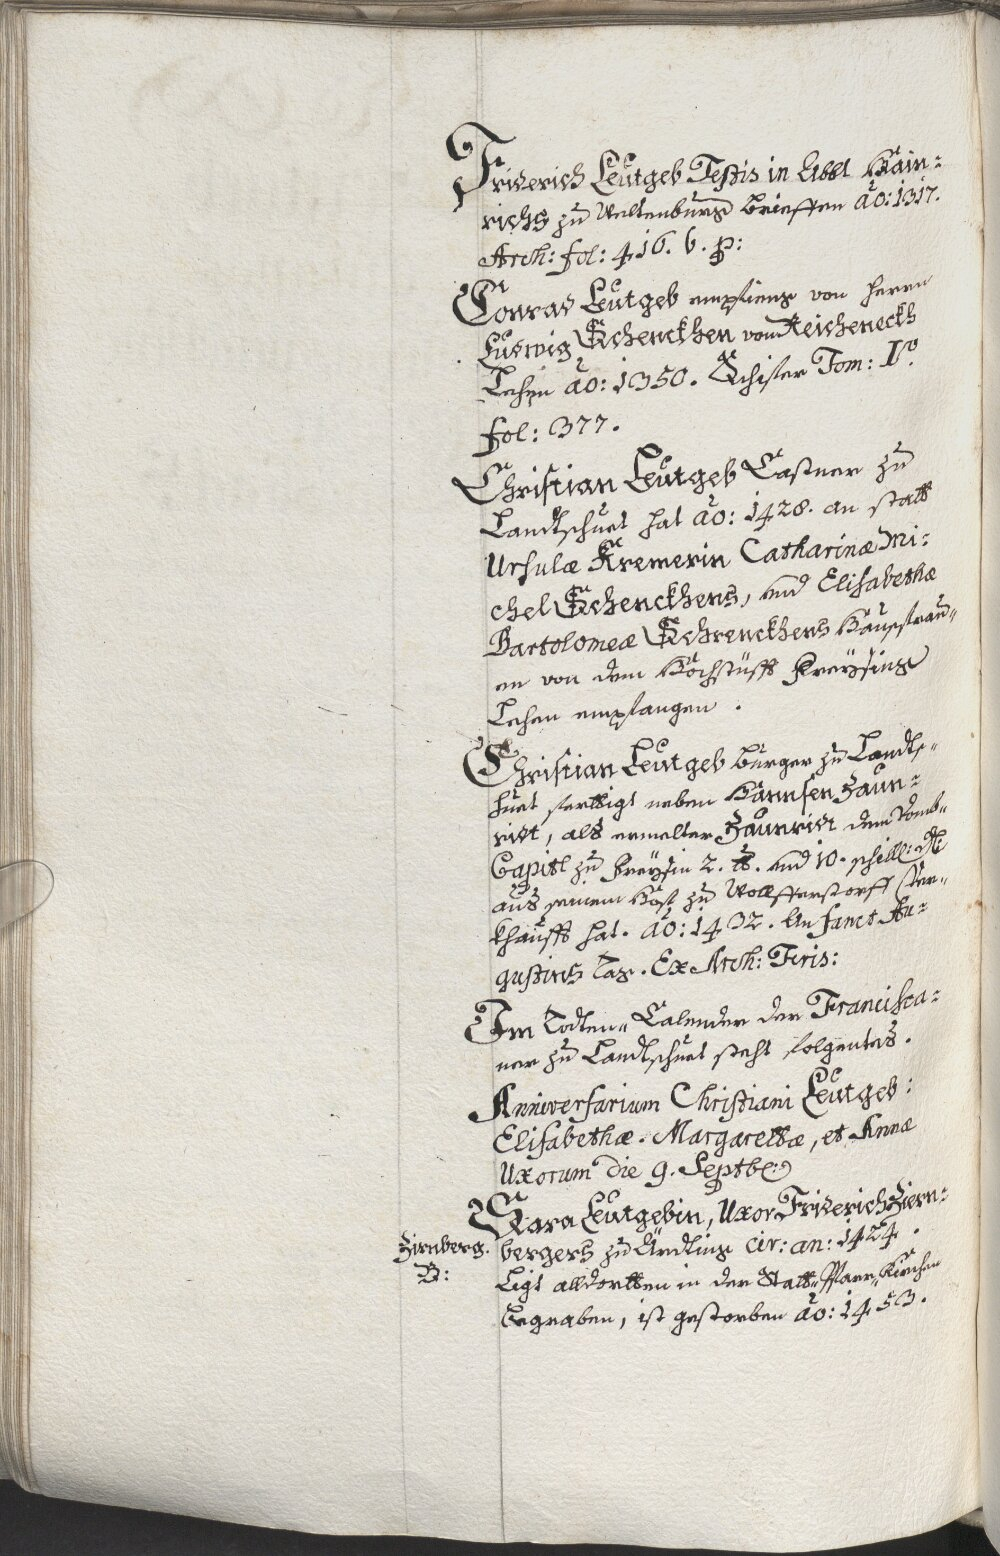 Friderich Leütgeb Testis in Abbt Hain:
richs zu Weltenburg brieffen ao: 1317.
Arch: fol: 416. b. p:
Conrad Leutgeb empfieng von herrn
Ludwig Schenckhen vom Reicheneckh
Lehen ao: 1350. Schifer Tom: I.o
fol: 377.
Christian Leutgeb Castner zu
Landtshuet hat ao: 1428. an statt
Ursulæ Kremerin Catharinæ Mi:
chel Schenckhens, und Elisabethæ
Bartolomeæ Schrenckhens Haußfrau„
en von dem Hochstüfft Freysing
Lehen empfangen.
Christian Leutgeb burger zu Landts„
huet ferttigt neben Hannsen Zaun:
riet, als ermelter Zaunriet dem Domb„
Capitl zu Freysin 2. lb. und 10. schill: dl
aus seinem Hof zu Wolfferstorff ver„
khaufft hat. ao: 1432. An sanct Au:
gustins Tag. Ex Arch: Fris:
Im Todten„Calender der Francisca:
ner zu Landtshuet steht folgentes.
Anniversarium Christiani Leutgeb:
Elisabethæ. Margarettæ, et Annæ
Uxorum die 9. Septb:
Sara Leutgebin, Uxor Friderich Ziern:
bergers zu Ärding cir: an: 1424.
Zirnberg.
B:
Ligt alldortten in der Statt„Pfarr„Kirchen
begraben, ist gestorben ao: 1453.